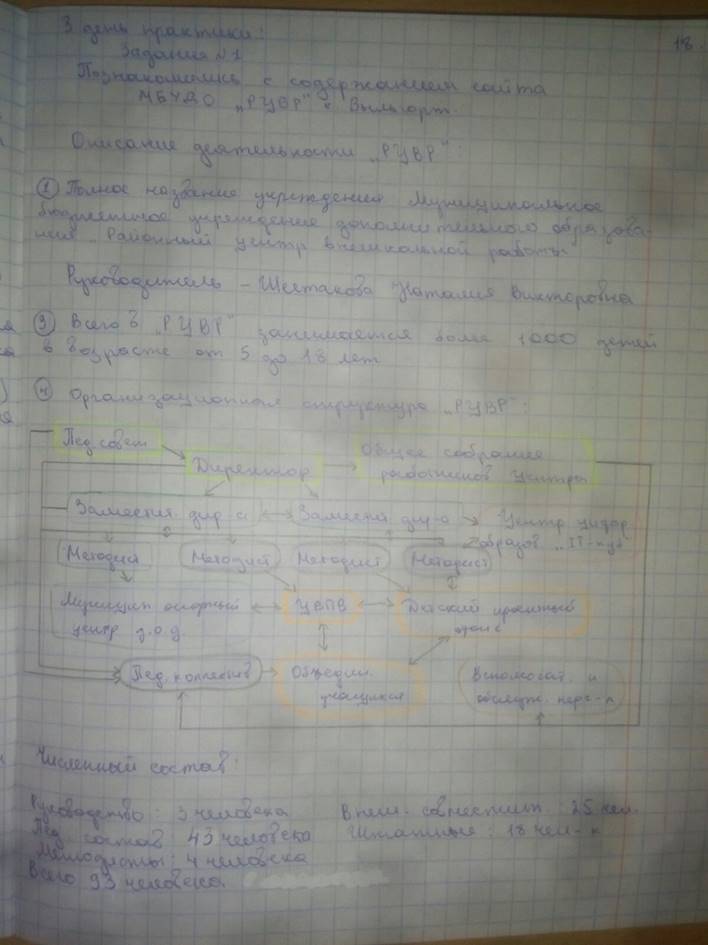 18
3 день практики:
Задание №1
Познакомились с содержанием сайта
МБУДО „РЦВР" с Выльгорт.
Описание деятельности „РЦВР":
① Полное название учреждения Муниципальное
бюджетное учреждение дополнительного образова-
ния „Районный центр внешкольной работы
Руководитель – Шестакова Наталия Викторовна
③ Всего в „РЦВР" занимается более 1000 детей
в возрасте от 5 до 18 лет
④ Организационная структура „РЦВР":
Пед. совет
Директор
Общее собрание
работников Центра
Заместит. дир-а
Заместит дир-а
Центр цифр.
образов „IT-куб"
Методист
Методист
Методист
Методист
Муницип опорный
центр д.о.д.
ЦВПВ
Детский проектный
офис
Пед. коллектив
Объедин.
учащихся
Вспомогат. и
обслуж. перс-л
Численный состав:
Руководство: 3 человека
Внеш. совместит.: 25 чел.
Пед. состав 43 человека
Штатные: 18 чел-к
Методисты: 4 человека
Всего 93 человека